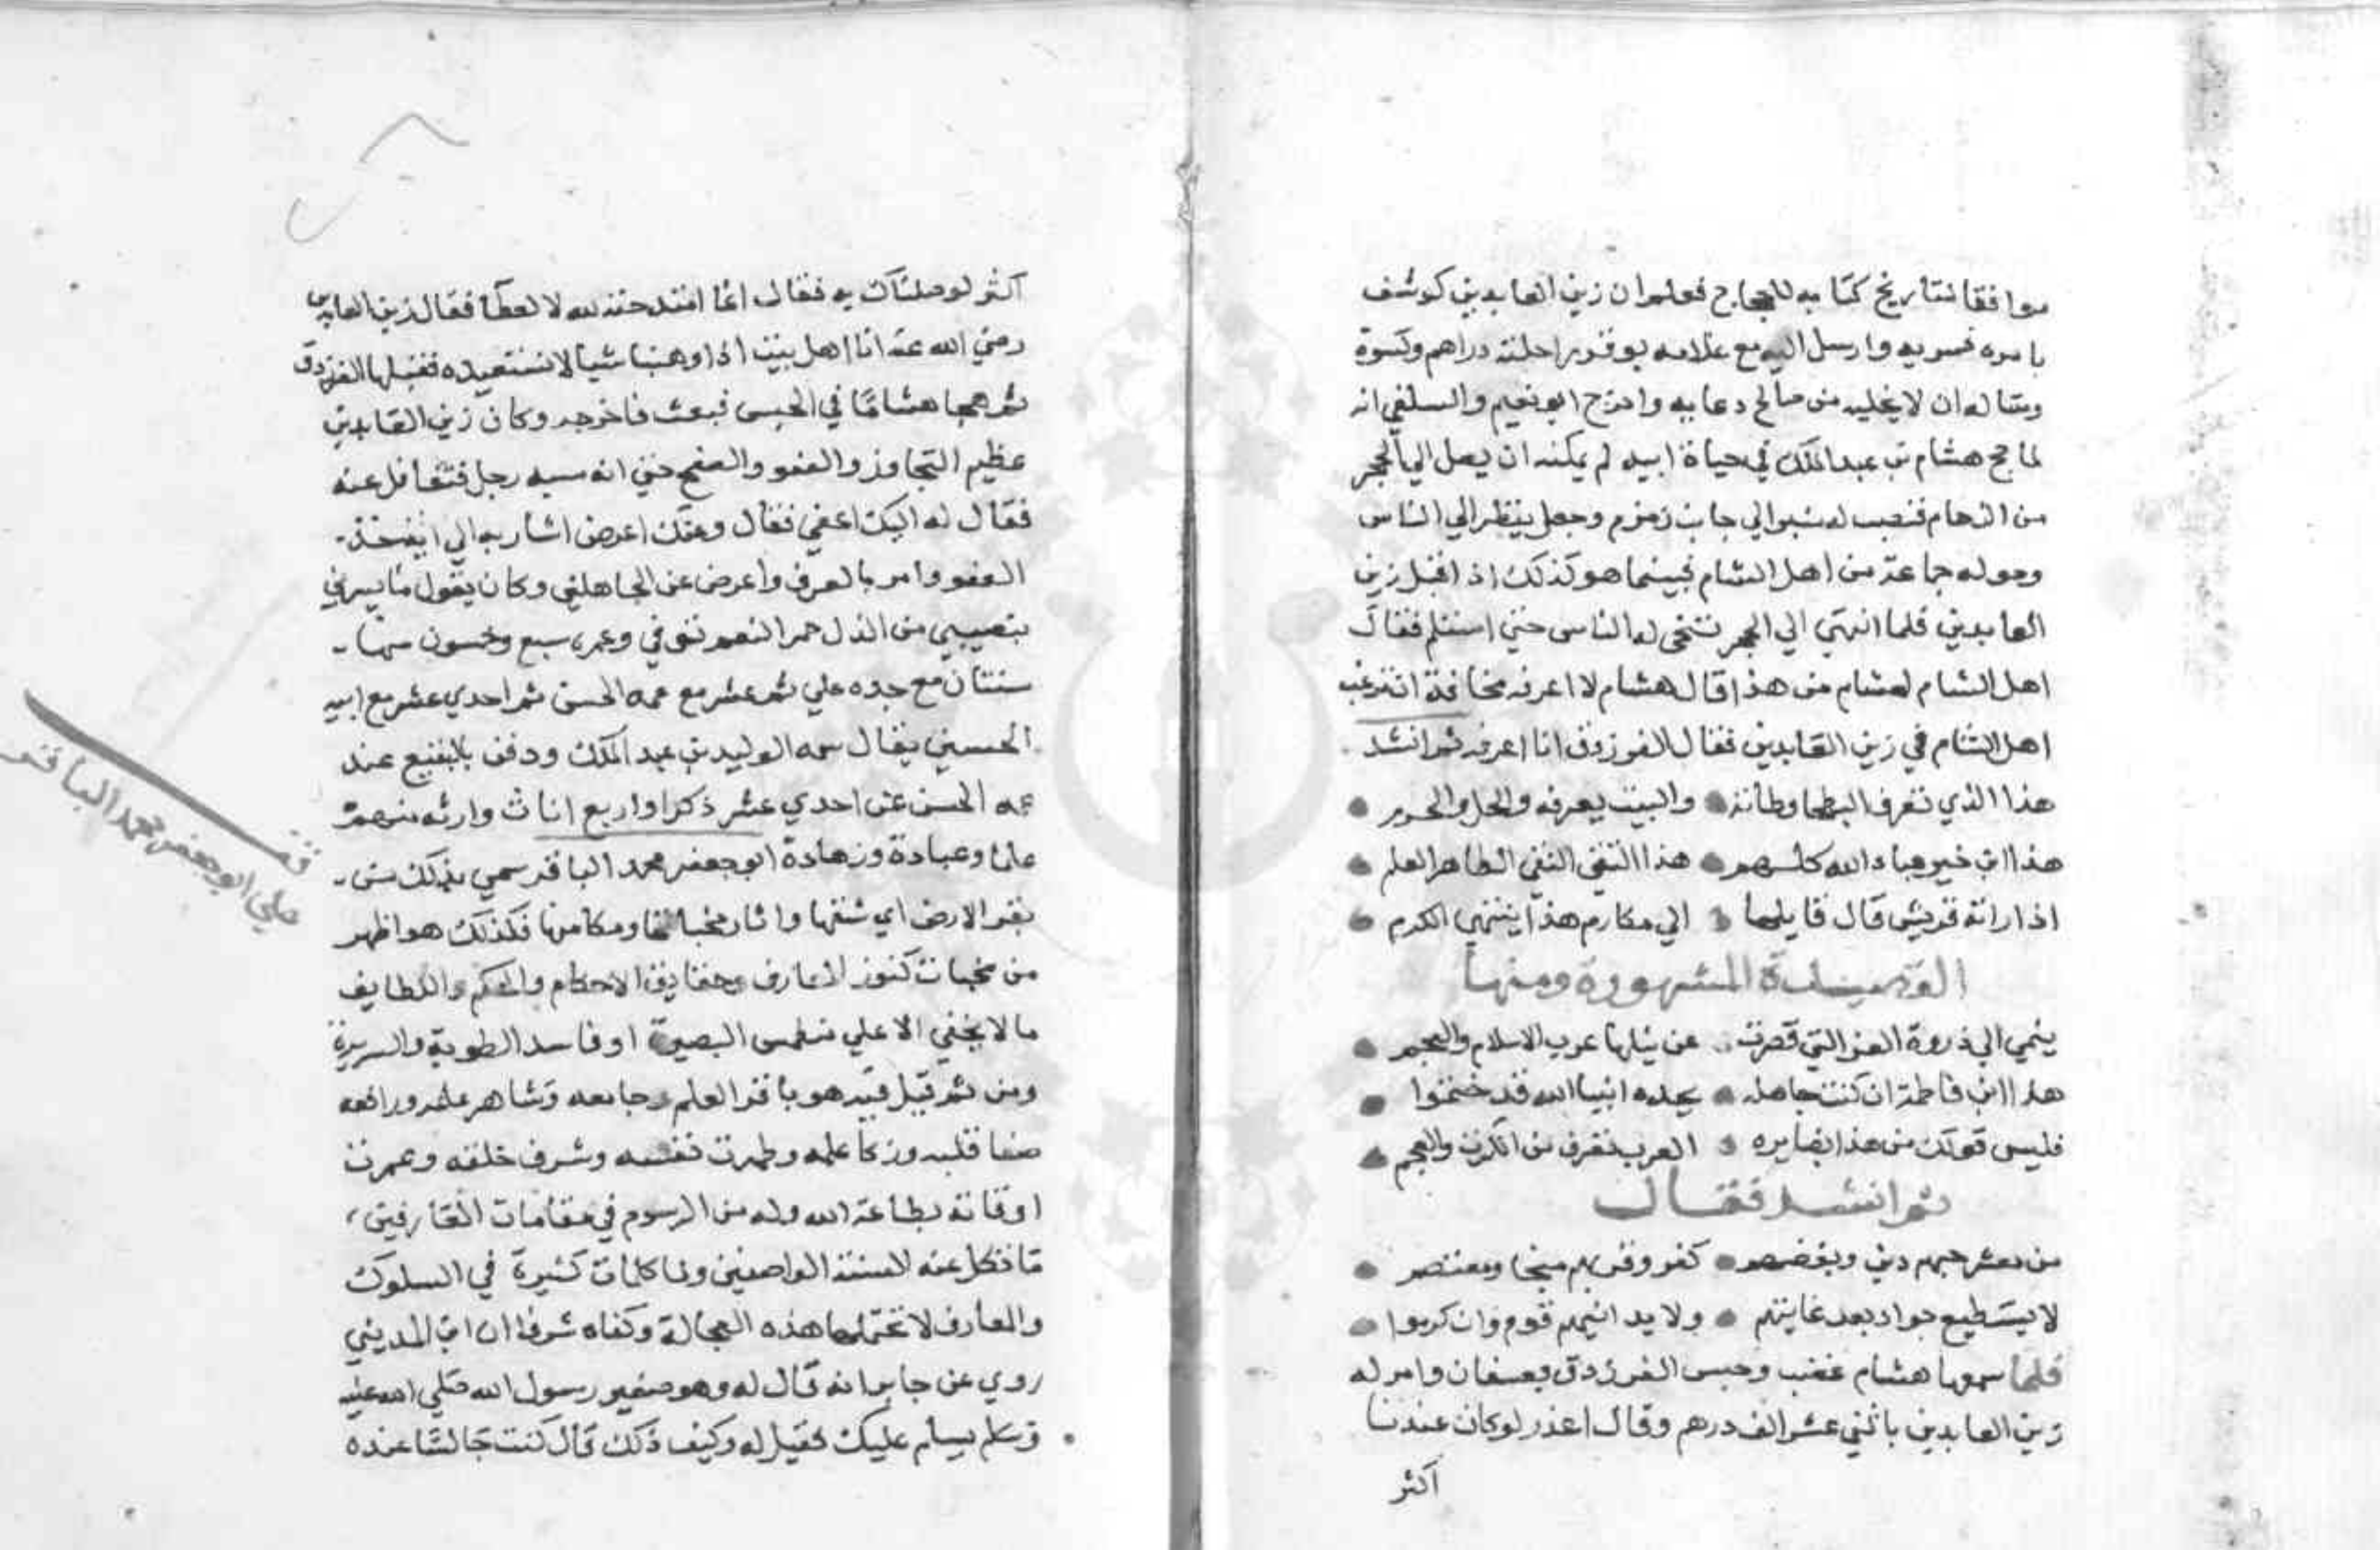 موافقا لتاريخ كتابه للحجاج فعلم ان زين العابدين كوشف
بامره فسر به وارسل اليه مع غلامه بوقر راحلته دراهم وكسوة
وساله ان لا يخليه من صالح دعايه واخرج ابو نعيم والسلفي انه
لما حج هشام بن عبد الملك في حياة ابيه لم يمكنه ان يصل الي الحجر
من الزحام فنصب له منبر الي جانب زمزم وجعل ينظر الي الناس
وحوله جماعة من اهل الشام فبينما هو كذلك اذ اقبل زين
العابدين فلما انتهي الي الحجر تنحى له الناس حتي استلم فقال
اهل الشام لهشام من هذا قال هشام لا اعرفه مخافة ان يرغب
اهل الشام في زين العابدين فقال الفرزدق انا اعرفه ثم انشد
هذا الذي تعرف البطحا وطاته والبيت يعرفه والحل والحرم
هذا ابن خير عباد الله كلهم هذا التقي النقي الطاهر العلم
اذا راته قريش قال قايلها الي مكارم هذا ينتهي الكرم
القصيدة المشهورة ومنها
ينمي الي ذروة العز التي قصرت عن نيلها عرب الاسلام والعجم
هذا ابن فاطمة ان كنت جاهله بجده انبيا الله قد ختموا
فليس قولك من هذا بضايره العرب تعرف من انكرت والعجم
ثم انشد فقال
من معشر حبهم دين وبغضهم كفر وقربهم منجا ومعتصم
لا يستطيع جواد بعد غايتهم ولا يدانيهم قوم وان كرموا
فلما سمعها هشام غضب وحبس الفرزدق بعسفان وامر له
زين العابدين باثني عشر الف درهم وقال اعذر لو كان عندنا
اكثر
اكثر لوصلناك به فقال انما امتدحته لله لا لعطا فقال زين العابدين
رضي الله عنه انا اهل بيت اذا وهبنا شيا لا نستعيده فقبلها الفرزدق
ثم هجا هشاما في الحبس فبعث فاخرجه وكان زين العابدين
عظيم التجاوز والعفو والصفح حتي انه سبه رجل فتغافل عنه
فقال له اياك اعني فقال وعنك اعرض اشار به الي اية خذ
العفو وامر بالعرف واعرض عن الجاهلين وكان يقول ما يسرني
بنصيبي من الذل حمر النعم توفي وعمره سبع وخمسون منها
سنتان مع جده علي ثم عشر مع عمه الحسن ثم احدي عشر مع ابيه
الحسين يقال سمه الوليد بن عبد الملك ودفن بالبقيع عند
عمه الحسن عن احدي عشر ذكرا واربع اناث وارثه منهم
علما وعبادة وزهادة ابو جعفر محمد الباقر سمي بذلك من
بقر الارض اي شقها واثار مخباتها ومكامنها فكذلك هو اظهر
من مخبات كنوز المعارف وحقايق الاحكام والحكم واللطايف
ما لا يخفي الا علي منطمس البصيرة او فاسد الطوية والسريرة
ومن ثم قيل فيه هو باقر العلم وجامعه وشاهر علمه ورافعه
صفا قلبه وزكا علمه وطهرت نفسه وشرف خلقه وعمرت
اوقاته بطاعة الله وله من الرسوم في مقامات العارفين
ما تكل عنه السنة الواصفين وله كلمات كثيرة في السلوك
والمعارف لا تحتملها هذه العجالة وكفاه شرفا ان ابن المديني
روي عن جابر انه قال له وهو صغير رسول الله صلي الله عليه
وسلم يسلم عليك فقيل له وكيف ذلك قال كنت جالسا عنده
ابو جعفر محمد الباقر